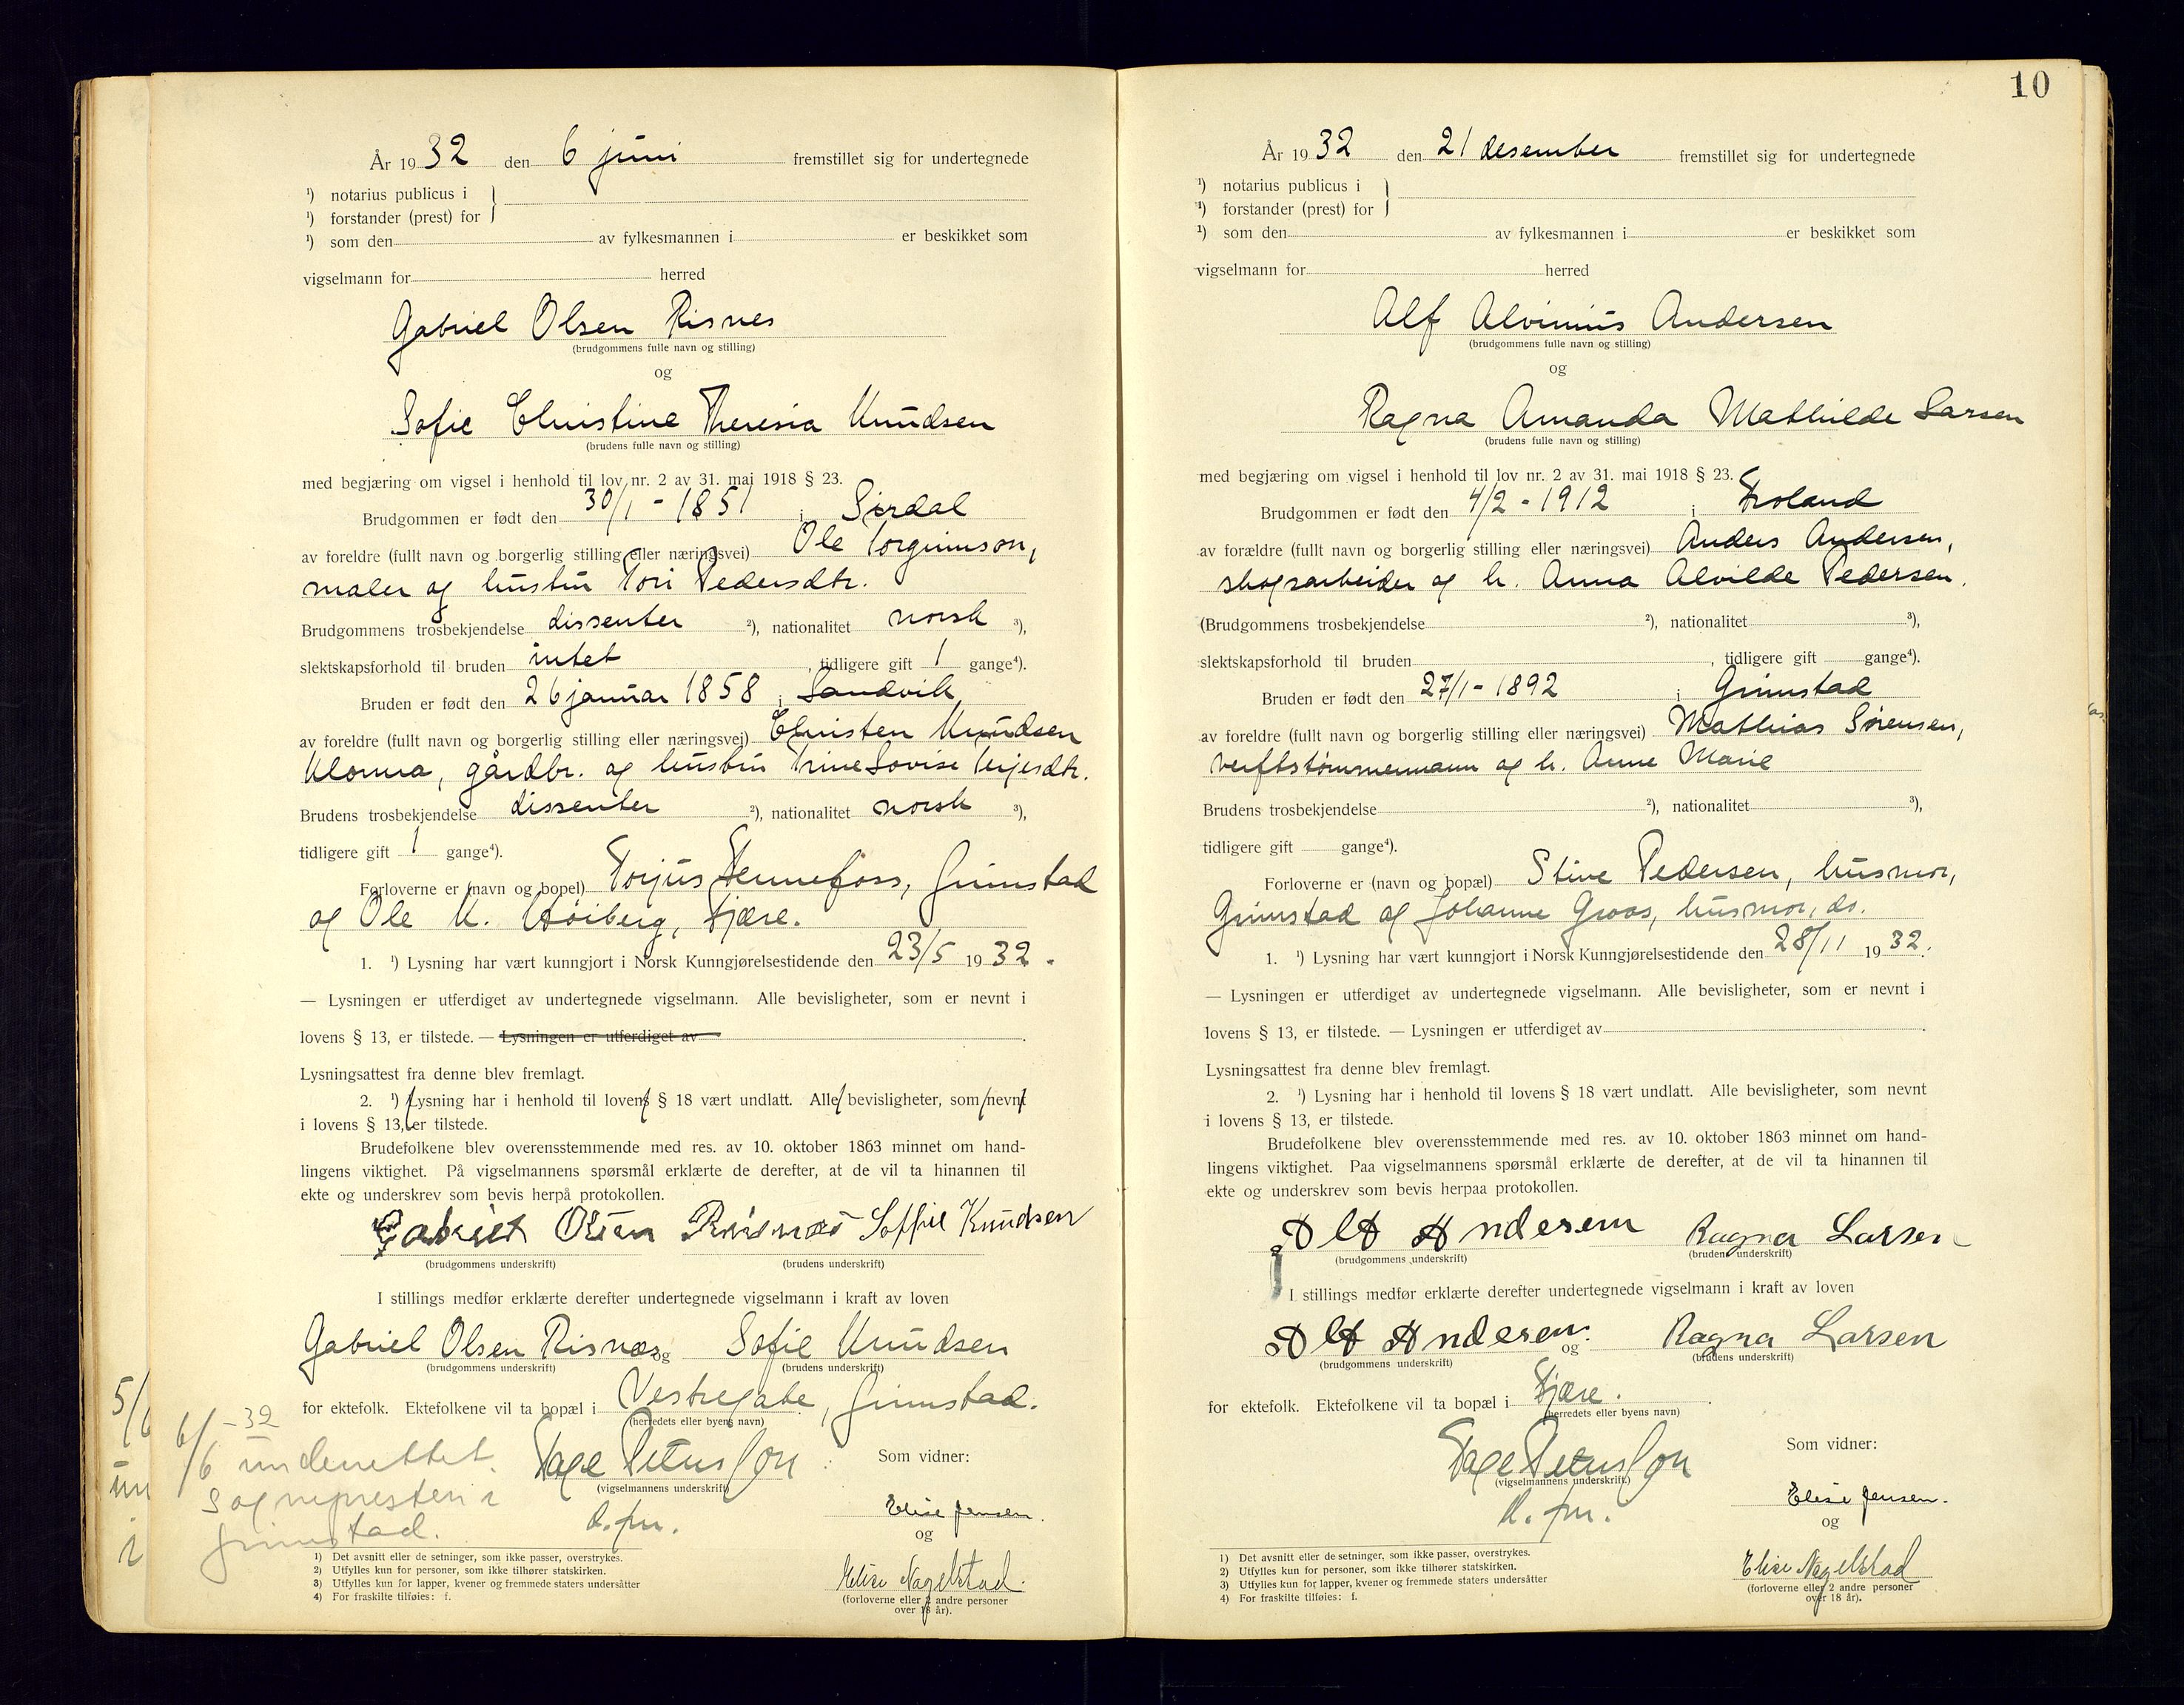 År 1932 den 6 juni fremstillet sig for undertegnede
¹) notarius publicus i
¹) forstander (prest) for
¹) som den av fylkesmannen i er beskikket som
vigselmann for herred
Gabriel Olsen Risnes
(brudgommens fulle navn og stilling)
og
Sofie Christine Theresia Knudsen
(brudens fulle navn og stilling)
med begjæring om vigsel i henhold til lov nr. 2 av 31. mai 1918 § 23.
Brudgommen er født den 30/1 - 1851 i Sirdal
av foreldre (fullt navn og borgerlig stilling eller næringsvei) Ole Torgrimson,
maler og hustru Tori Pedersdtr.
Brudgommens trosbekjendelse dissenter ²), nationalitet norsk ³),
slektskapsforhold til bruden intet, tidligere gift 1 gange⁴).
Bruden er født den 26 januar 1858 i Landvik
av foreldre (fullt navn og borgerlig stilling eller næringsvei) Christen Knudsen
Klonna, gårdbr. og hustru Trine Lovise Terjesdtr.
Brudens trosbekjendelse dissenter ²), nationalitet norsk ³),
tidligere gift 1 gange⁴).
Forloverne er (navn og bopel) Torjus Hennefoss, Grimstad
og Ole K. Høiberg, Fjære.
1. ¹) Lysning har vært kunngjort i Norsk Kunngjørelsestidende den 23/5 1932.
— Lysningen er utferdiget av undertegnede vigselmann. Alle bevisligheter, som er nevnt i
lovens § 13, er tilstede. — Lysningen er utferdiget av
Lysningsattest fra denne blev fremlagt.
2. ¹) Lysning har i henhold til lovens § 18 vært undlatt. Alle bevisligheter, som nevnt
i lovens § 13, er tilstede.
Brudefolkene blev overensstemmende med res. av 10. oktober 1863 minnet om hand-
lingens viktighet. På vigselmannens spørsmål erklærte de derefter, at de vil ta hinannen til
ekte og underskrev som bevis herpå protokollen.
Gabriel Olsen Risnæs Soffie Knudsen
(brudgommens underskrift) (brudens underskrift)
I stillings medfør erklærte derefter undertegnede vigselmann i kraft av loven
Gabriel Olsen Risnæs og Sofie Knudsen
(brudgommens underskrift) (brudens underskrift)
for ektefolk. Ektefolkene vil ta bopæl i Vestregate, Grimstad.
(herredets eller byens navn)
6/6 -32
underrettet
sognepresten i
Grimstad.
Tage Peterson
(vigselmannens underskrift)
d. fm.
Som vidner:
Elise Jensen.
og
Elise Nagelstad.
(forloverne eller 2 andre personer
over 18 år).
1) Det avsnitt eller de setninger, som ikke passer, overstrykes.
2) Utfylles kun for personer, som ikke tilhører statskirken.
3) Utfylles kun for lapper, kvener og fremmede staters undersåtter
4) For fraskilte tilføies: f.
5/6
un
i
10
År 1932 den 21 desember fremstillet sig for undertegnede
¹) notarius publicus i
¹) forstander (prest) for
¹) som den av fylkesmannen i er beskikket som
vigselmann for herred
Alf Alvinius Andersen
(brudgommens fulle navn og stilling)
og
Ragna Amanda Mathilde Larsen
(brudens fulle navn og stilling)
med begjæring om vigsel i henhold til lov nr. 2 av 31. mai 1918 § 23.
Brudgommen er født den 4/2 - 1912 i Froland
av forældre (fullt navn og borgerlig stilling eller næringsvei) Anders Andersen,
skogsarbeider og h. Anna Alvilde Pedersen.
(Brudgommens trosbekjendelse ²), nationalitet ³),
slektskapsforhold til bruden, tidligere gift gange⁴).
Bruden er født den 27/1 - 1892 i Grimstad
av foreldre (fullt navn og borgerlig stilling eller næringsvei) Mathias Sørensen,
verftstømmermann og h. Anne Marie
Brudens trosbekjendelse ²), nationalitet ³),
tidligere gift gange⁴).
Forloverne er (navn og bopæl) Stine Pedersen, husmor,
Grimstad og Johanne Groos, husmor, ds.
1. ¹) Lysning har vært kunngjort i Norsk Kunngjørelsestidende den 28/11 1932.
— Lysningen er utferdiget av undertegnede vigselmann. Alle bevisligheter, som er nevnt i
lovens § 13, er tilstede. — Lysningen er utferdiget av
Lysningsattest fra denne blev fremlagt.
2. ¹) Lysning har i henhold til lovens § 18 vært undlatt. Alle bevisligheter, som nevnt
i lovens § 13, er tilstede.
Brudefolkene blev overensstemmende med res. av 10. oktober 1863 minnet om hand-
lingens viktighet. Paa vigselmannens spørsmål erklærte de derefter, at de vil ta hinannen til
ekte og underskrev som bevis herpaa protokollen.
Alf Andersen Ragna Larsen
(brudgommens underskrift) (brudens underskrift)
I stillings medfør erklærte derefter undertegnede vigselmann i kraft av loven
Alf Andersen. og Ragna Larsen
(brudgommens underskrift) (brudens underskrift)
for ektefolk. Ektefolkene vil ta bopæl i Fjære.
(herredets eller byens navn)
Tage Peterson
(vigselmannens underskrift)
d. fm.
Som vidner:
Elise Jensen.
og
Elise Nagelstad
(forloverne eller 2 andre personer
over 18 år).
1) Det avsnitt eller de setninger, som ikke passer, overstrykes.
2) Utfylles kun for personer, som ikke tilhører statskirken.
3) Utfylles kun for lapper, kvener og fremmede staters undersåtter
4) For fraskilte tilføies: f.